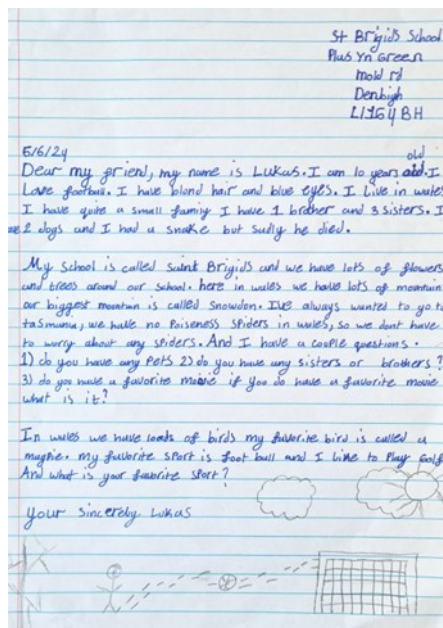 St Brigids School
Plus Yn Green
mold rd
Denbigh
LL164BH
5/6/24
old
Dear my friend, my name is Lukas. I am 10 years I
Love football. I have blond hair and blue eyes. I Live in wales
I have quite a small family I have 1 brother and 3 sisters. I
2 dogs and I had a snake but sadly he died.
My school is called saint Brigids and we have lots of flowers
and trees around our school. here in wales we have lots of mountain
our biggest mountain is called snowdon. I've always wanted to go to
tasmania, we have no Poiseness spiders in wales, so we dont have
to worry about any spiders. And I have a couple questions.
1) do you have any Pets 2) do you have any sisters or brothers?
3) do you have a favorite movie if you do have a favorite movie
what is it?
In wales we have loads of birds my favorite bird is called a
magpie. my favorite sport is foot ball and I like to Play Golf
And what is your favorite sport?
your sincereby Lukas